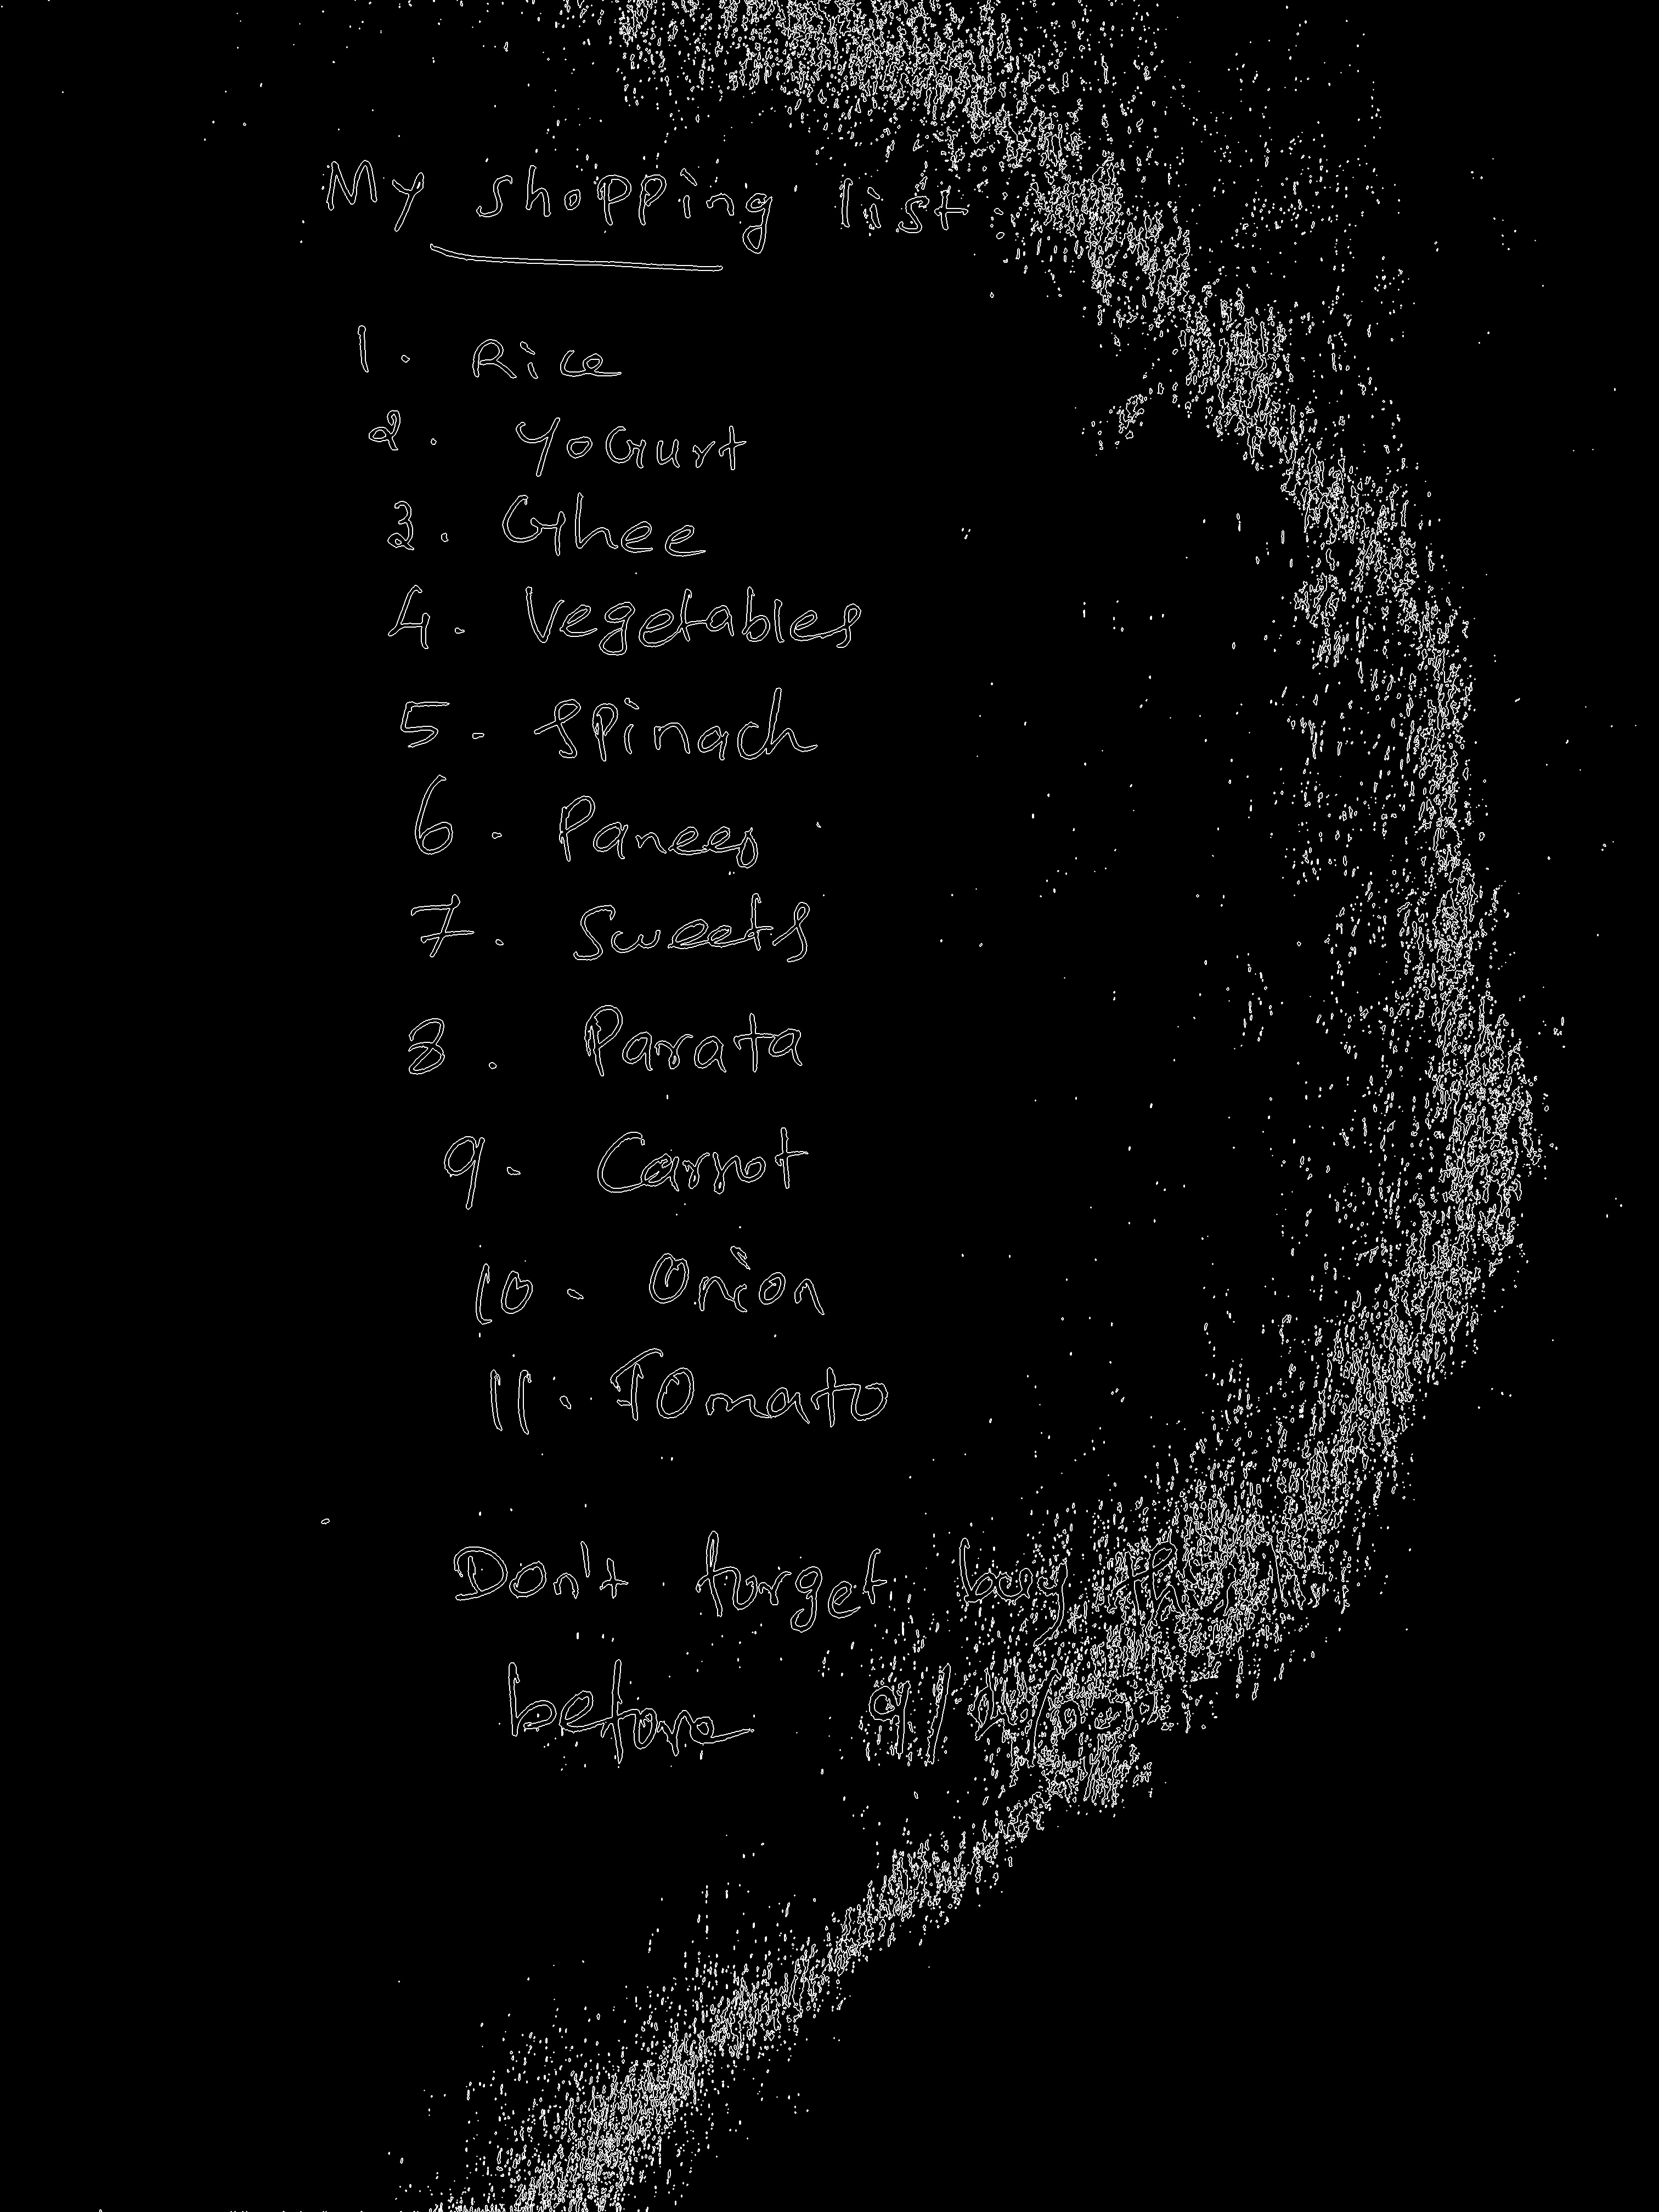 My shopping list :
1. Rice
2. Yogurt
3. Ghee
4. Vegetables
5. Spinach
6. Paneer
7. Sweets
8. Parata
9. Carrot
10. Onion
11. Tomato
Don't forget buy
before